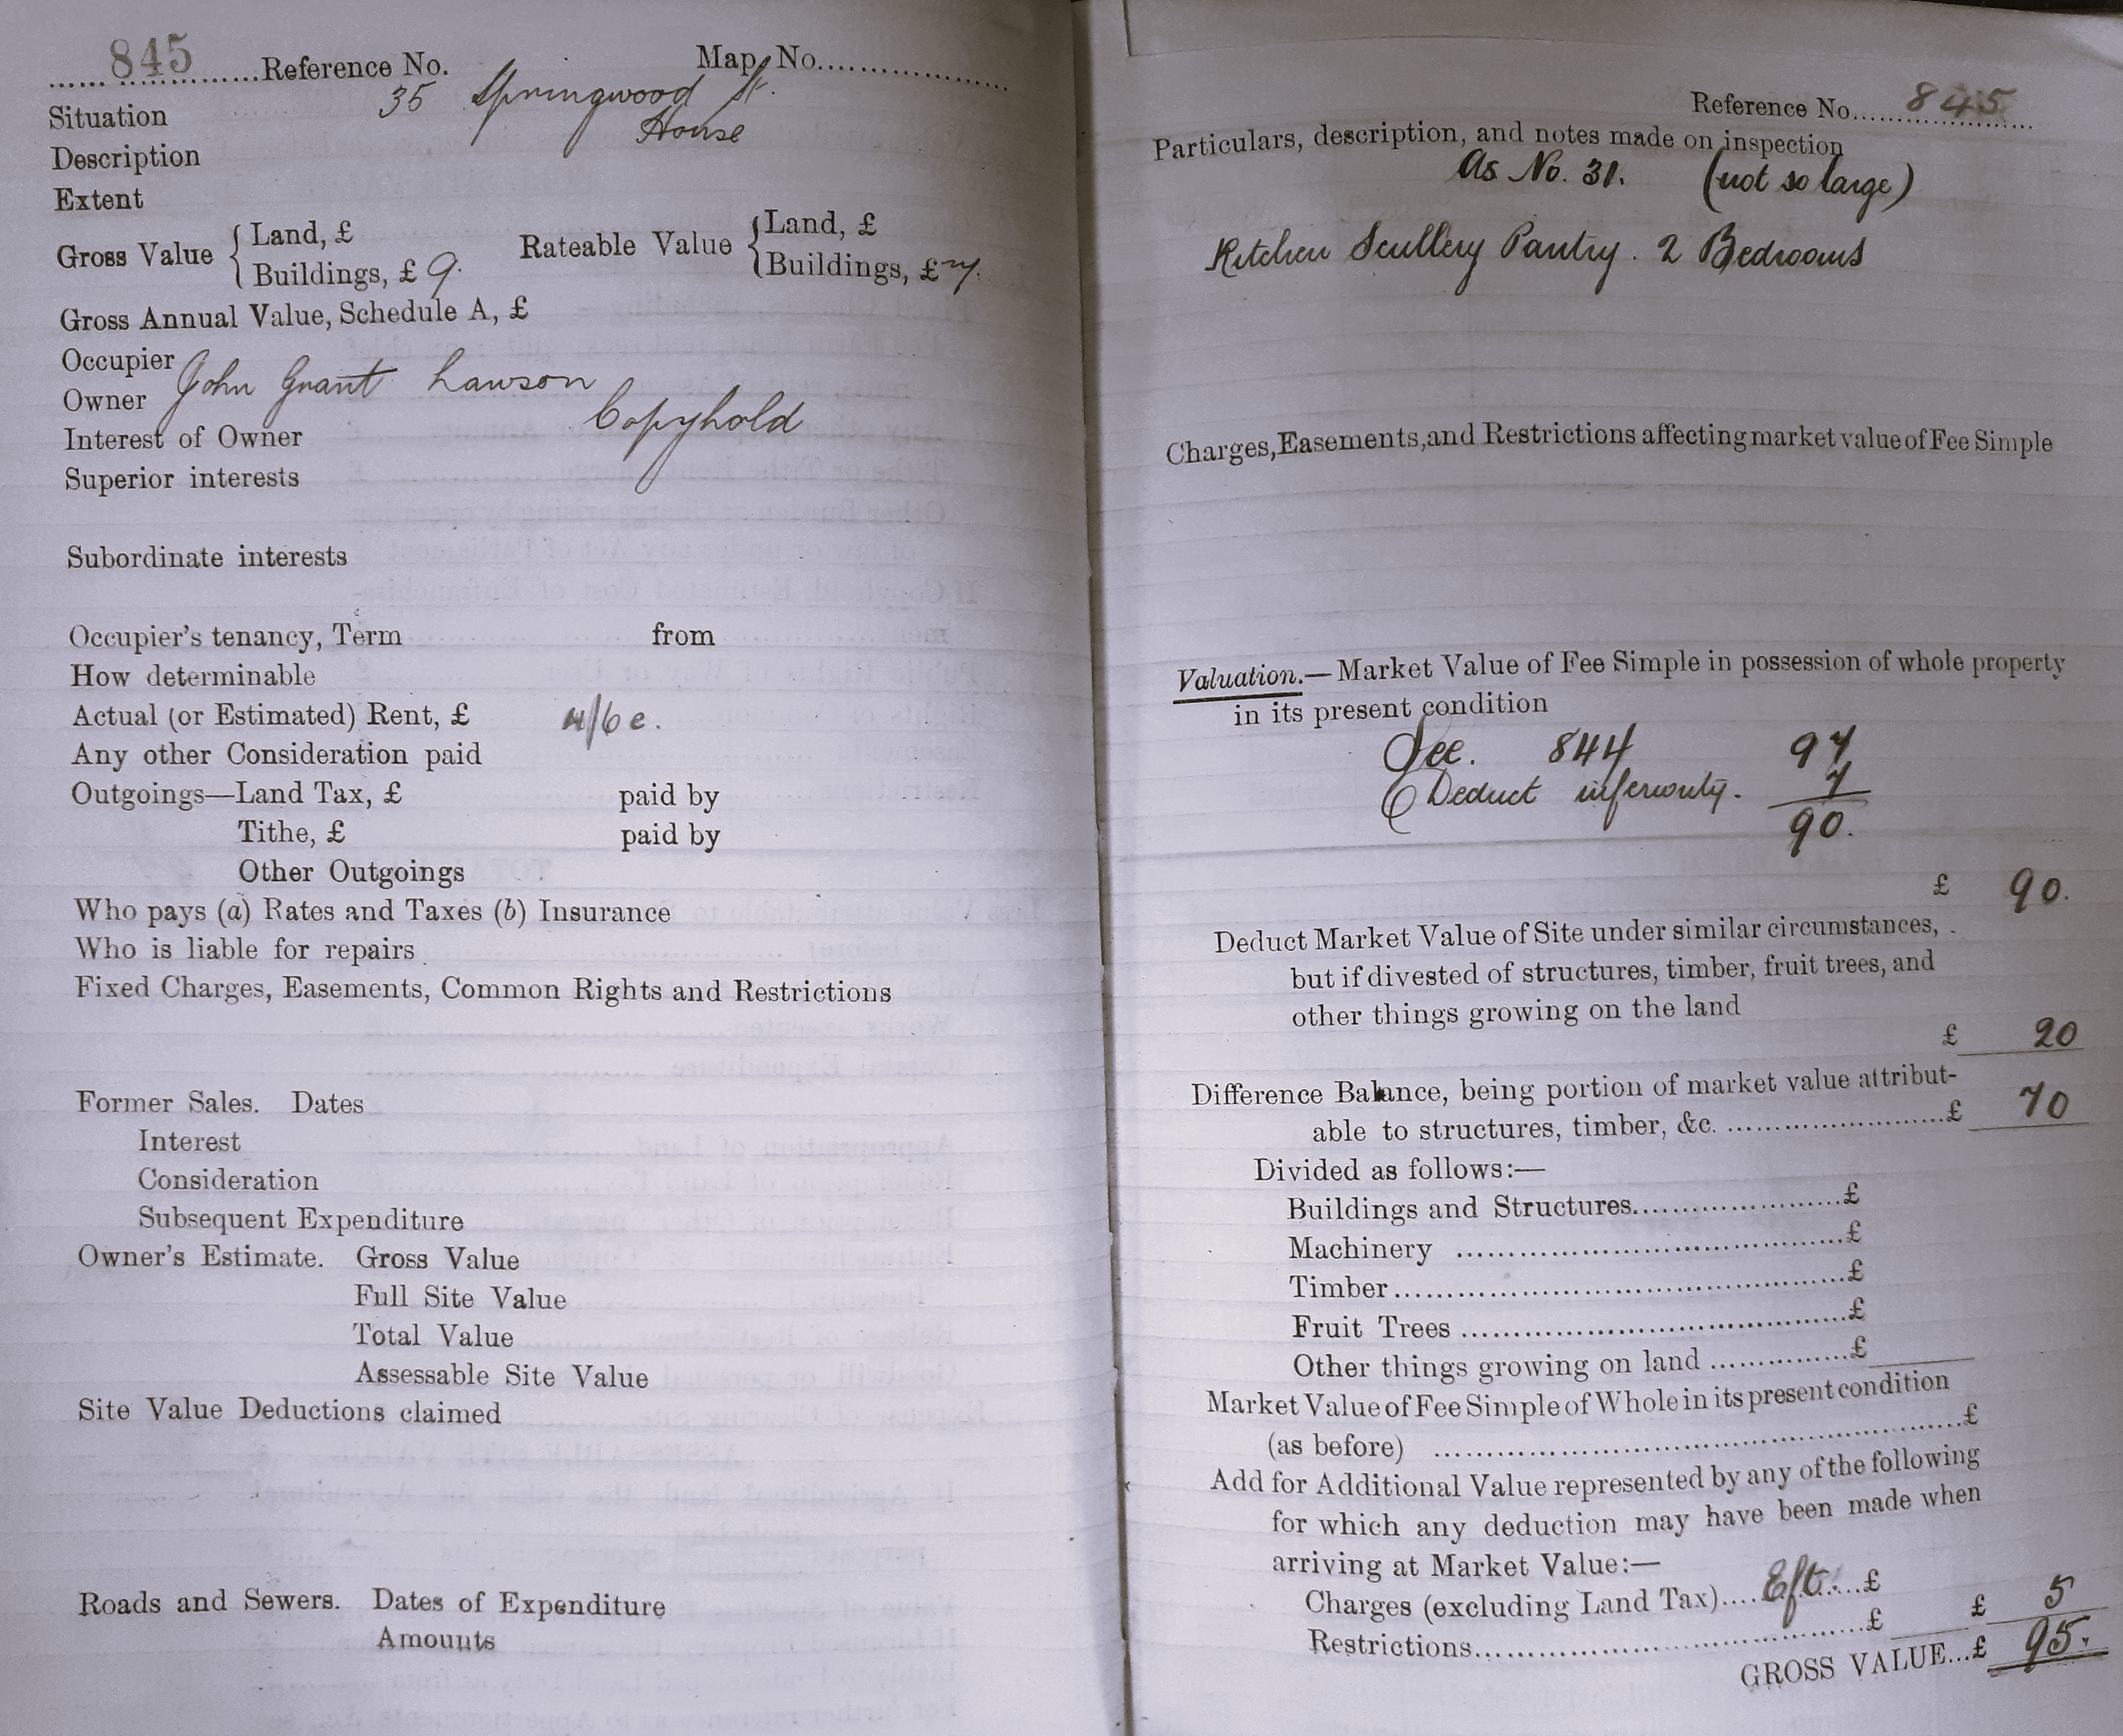 845 Reference No. Map No.
Situation 35 Springwood St.
Description House
Extent
Gross Value { Land, £ Rateable Value { Land, £
Buildings, £ 9. Buildings, £ 7.
Gross Annual Value, Schedule A, £
Occupier
Owner John Grant Lawson
Interest of Owner Copyhold
Superior interests
Subordinate interests
Occupier's tenancy, Term from
How determinable
Actual (or Estimated) Rent, £ 4/6 e.
Any other Consideration paid
Outgoings—Land Tax, £ paid by
Tithe, £ paid by
Other Outgoings
Who pays (a) Rates and Taxes (b) Insurance
Who is liable for repairs
Fixed Charges, Easements, Common Rights and Restrictions
Former Sales. Dates
Interest
Consideration
Subsequent Expenditure
Owner's Estimate. Gross Value
Full Site Value
Total Value
Assessable Site Value
Site Value Deductions claimed
Roads and Sewers. Dates of Expenditure
Amounts
Reference No. 845
Particulars, description, and notes made on inspection
As No. 31. (not so large)
Kitchen Scullery Pantry. 2 Bedrooms
Charges, Easements, and Restrictions affecting market value of Fee Simple
Valuation.—Market Value of Fee Simple in possession of whole property
in its present condition
See. 844 97
Deduct inferiority. 7
90.
£ 90.
Deduct Market Value of Site under similar circumstances,
but if divested of structures, timber, fruit trees, and
other things growing on the land
£ 20
Difference Balance, being portion of market value attribut-
able to structures, timber, &c. £ 70
Divided as follows:—
Buildings and Structures £
Machinery £
Timber £
Fruit Trees £
Other things growing on land £
Market Value of Fee Simple of Whole in its present condition
(as before) £
Add for Additional Value represented by any of the following
for which any deduction may have been made when
arriving at Market Value:—
Charges (excluding Land Tax) Eft. £
Restrictions £ £ 5
GROSS VALUE...£ 95.